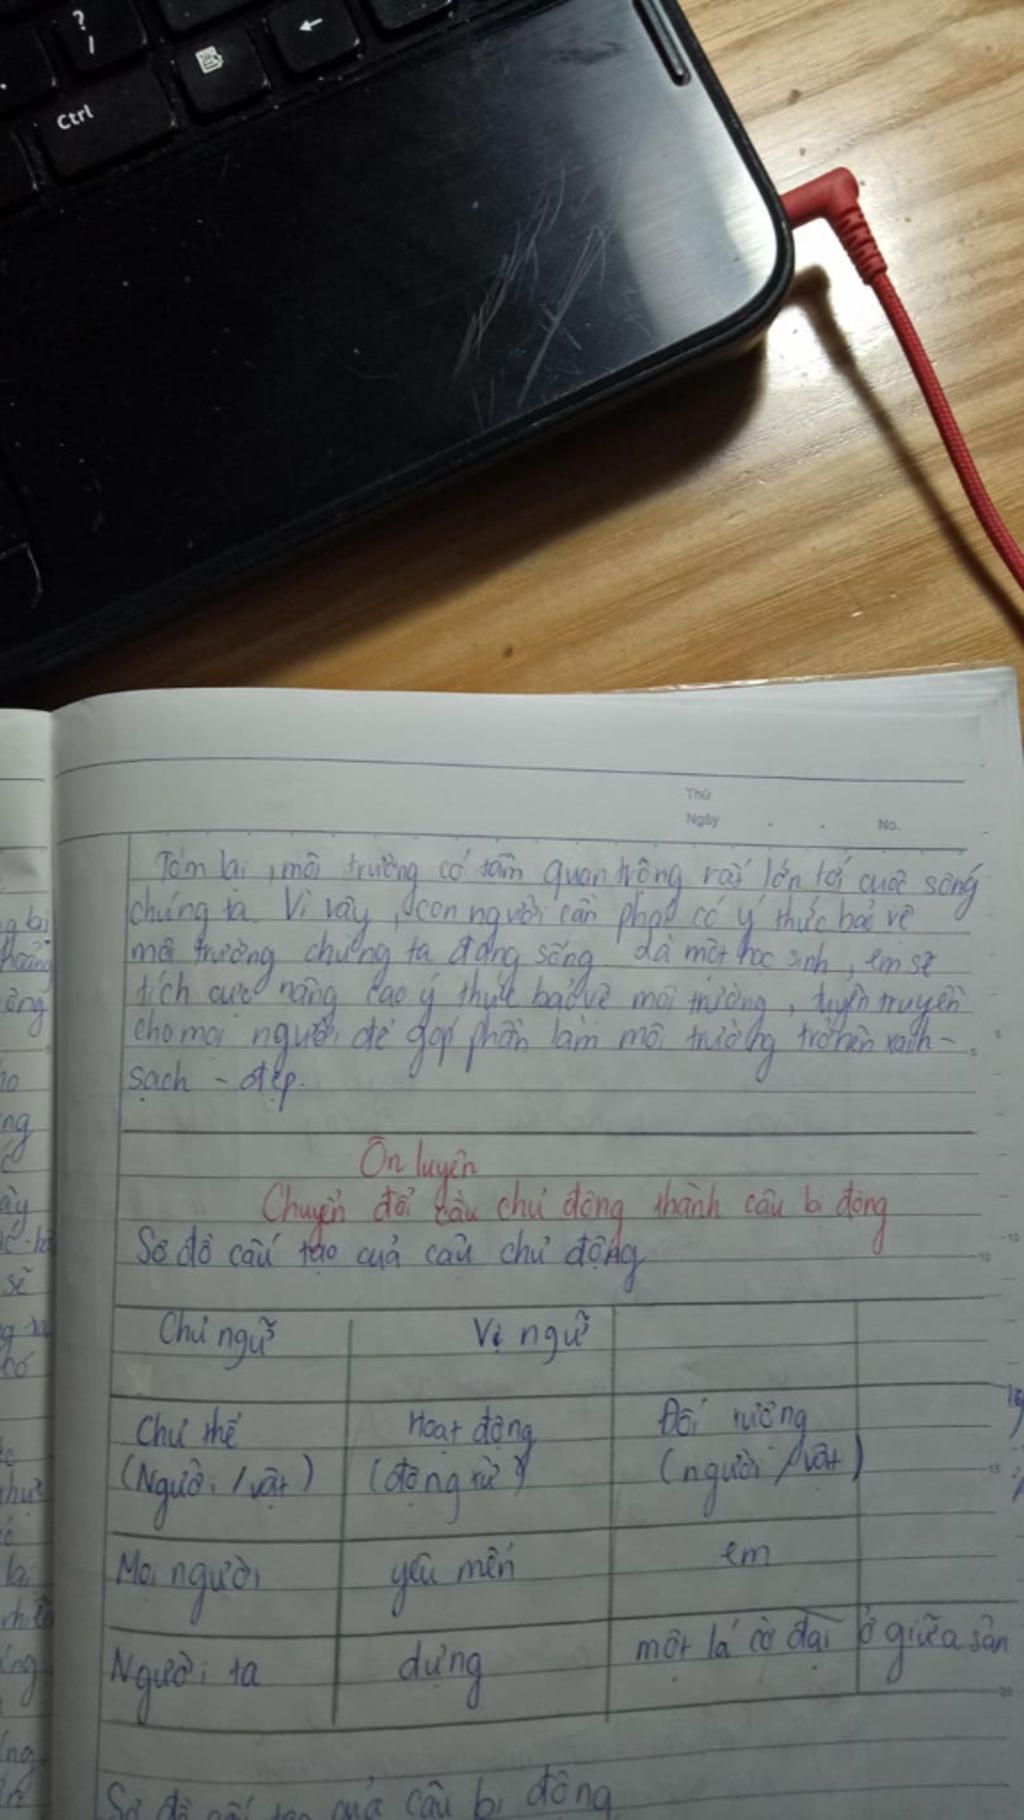 ?
/
Ctrl
Thứ
Ngày
No.
Tóm lại, môi trường có tầm quan trọng rất lớn tới cuộc sống
chúng ta. Vì vậy, con người cần phải có ý thức bảo vệ
môi trường chúng ta đang sống. Là một học sinh, em sẽ
tích cực nâng cao ý thức bảo vệ môi trường, tuyên truyền
cho mọi người để góp phần làm môi trường trở nên xanh-
sạch - đẹp.
Ôn luyện
Chuyển đổi câu chủ động thành câu bị động
Sơ đồ cấu tạo của câu chủ động
Chủ ngữ Vị ngữ
Chủ thể Hoạt động Đối tượng
(Người/vật) (động từ) (người/vật)
Mọi người yêu mến em
Người ta dựng một lá cờ đại ở giữa sân
Sơ đồ cấu tạo của câu bị động